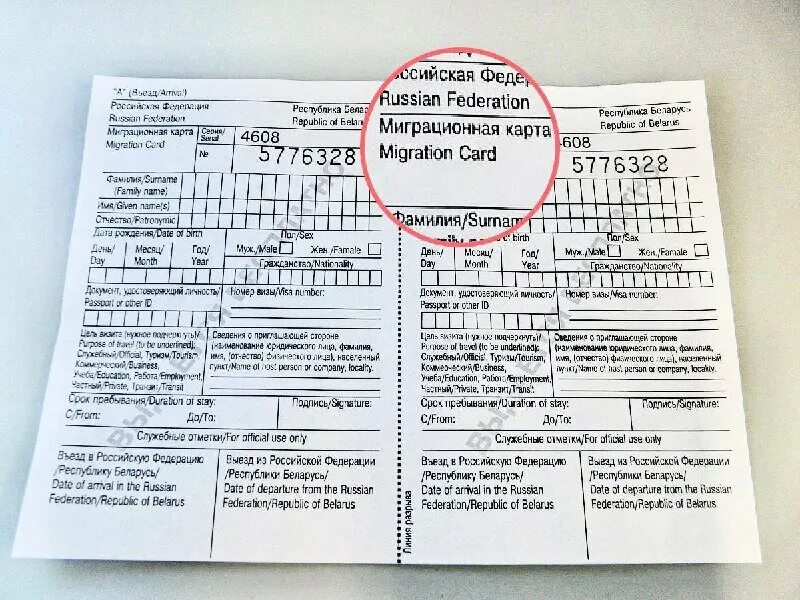 "А" (Въезд/Arrival)
Российская Федерация
Russian Federation
Республика Бела
Republic of Belar
Миграционная карта
Migration Card
Серия/
Serial
4608
№
5776328
Фамилия/Surname
(Family name)
Имя/Given name(s)
Отчество/Patronymic
Дата рождения/Date of birth
Пол/Sex
День/
Day
Месяц/
Month
Год/
Year
Муж./Male
Жен./Famale
Гражданство/Nationality
Документ, удостоверяющий личность/
Passport or other ID
Номер визы/Visa number:
Цель визита (нужное подчеркнуть)/
Purpose of travel (to be underlined):
Служебный/Official, Туризм/Tourism,
Коммерческий/Business,
Учеба/Education, Работа/Employment,
Частный/Private, Транзит/Transit
Сведения о приглашающей стороне
(наименование юридического лица, фамилия,
имя, (отчество) физического лица), населенный
пункт/Name of host person or company, locality.
Срок пребывания/Duration of stay:
С/From:
До/To:
Подпись/Signature:
Служебные отметки/For official use only
Въезд в Российскую Федерацию
/Республику Беларусь/
Date of arrival in the Russian
Federation/Republic of Belarus
Выезд из Российской Федерации
/Республики Беларусь/
Date of departure from the Russian
Federation/Republic of Belarus
Линия разрыва
оссийская Феде
Russian Federation
Миграционная карта
Migration Card
Фамилия/Surnam
Республика Беларусь
Republic of Belarus
608
5776328
f birth
Пол/Sex
День/
Day
Месяц/
Month
Год/
Year
Муж./Male
Жен./Famale
Гражданство/Nationality
Документ, удостоверяющий личность/
Passport or other ID
Номер визы/Visa number:
Цель визита (нужное подчеркнуть)/
Purpose of travel (to be underlined):
Служебный/Official, Туризм/Tourism,
Коммерческий/Business,
Учеба/Education, Работа/Employment,
Частный/Private, Транзит/Transit
Сведения о приглашающей стороне
(наименование юридического лица, фамилия,
имя, (отчество) физического лица), населенный
пункт/Name of host person or company, locality.
Срок пребывания/Duration of stay:
С/From:
До/To:
Подпись/Signature:
Служебные отметки/For official use only
Въезд в Российскую Федерацию
/Республику Беларусь/
Date of arrival in the Russian
Federation/Republic of Belarus
Выезд из Российской Федерации
/Республики Беларусь/
Date of departure from the Russian
Federation/Republic of Belarus